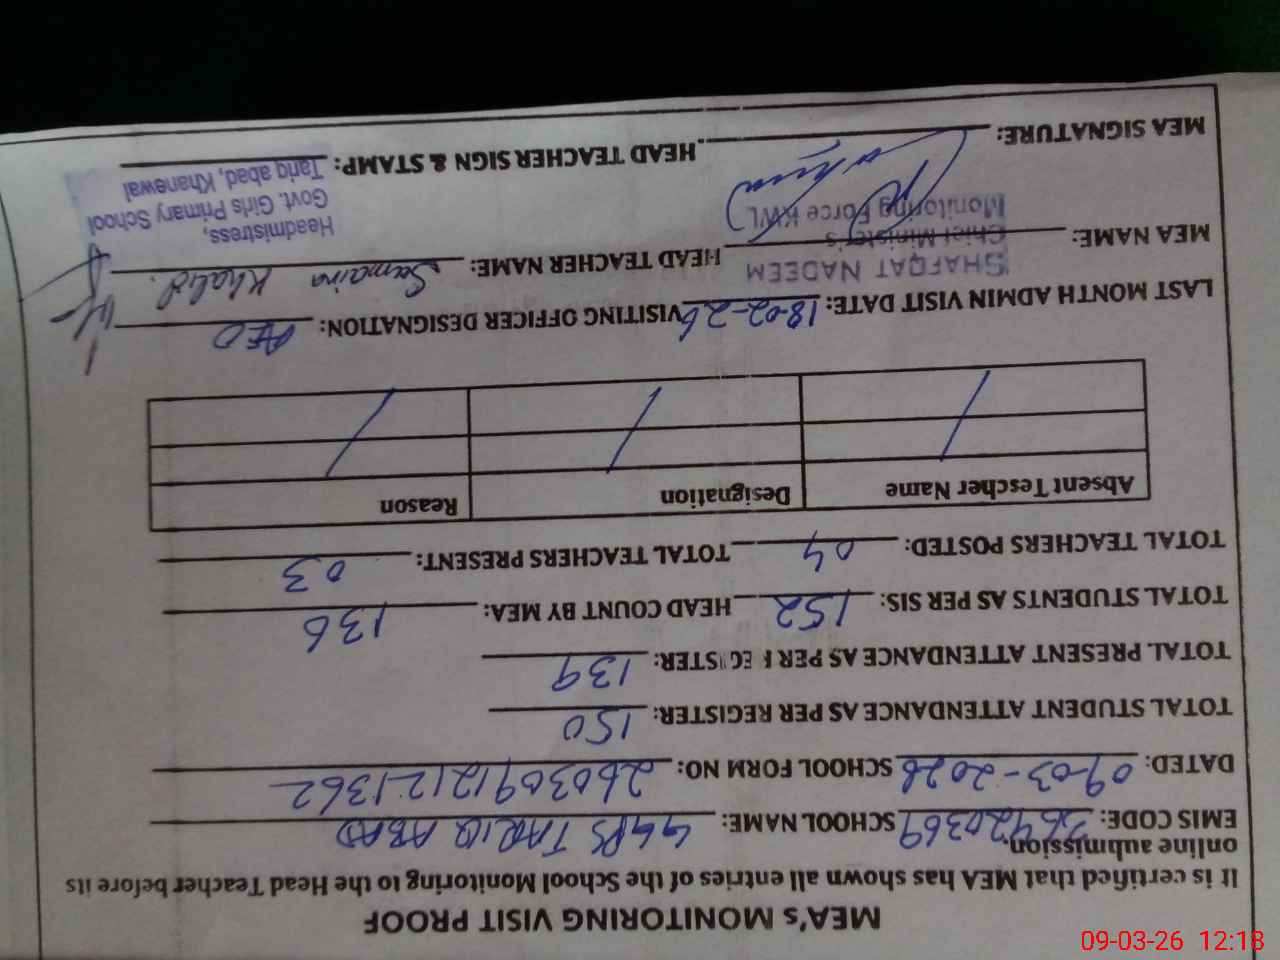 MEA's MONITORING VISIT PROOF
It is certified that MEA has shown all entries of the School Monitoring to the Head Teacher before its
online aubmission.
EMIS CODE: 36420369 SCHOOL NAME: GGPS TARIQ ABAD
DATED: 09-03-2026 SCHOOL FORM NO: 26030912121362
TOTAL STUDENT ATTENDANCE AS PER REGISTER: 150
TOTAL PRESENT ATTENDANCE AS PER REGISTER: 139
TOTAL STUDENTS AS PER SIS: 152 HEAD COUNT BY MEA: 136
TOTAL TEACHERS POSTED: 04 TOTAL TEACHERS PRESENT: 03
Absent Tescher Name Designation Reason
LAST MONTH ADMIN VISIT DATE: 18-02-26 VISITING OFFICER DESIGNATION: AEO
MEA NAME: HEAD TEACHER NAME: Samaira Khalid.
SHAFQAT NADEEM
Chief Minister's
Monitoring Force KWL
MEA SIGNATURE: HEAD TEACHER SIGN & STAMP:
Headmistress,
Govt. Girls Primary School
Tariq abad, Khanewal
09-03-26 12:18